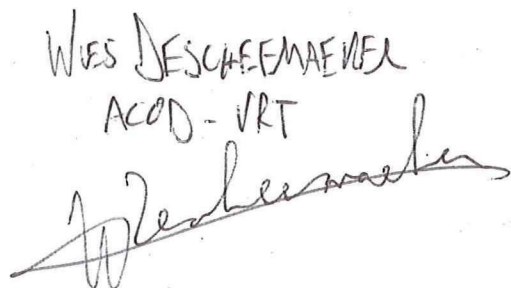 WIES DESCHEEMAEKER
ACOD - VRT
WDescheemaeker